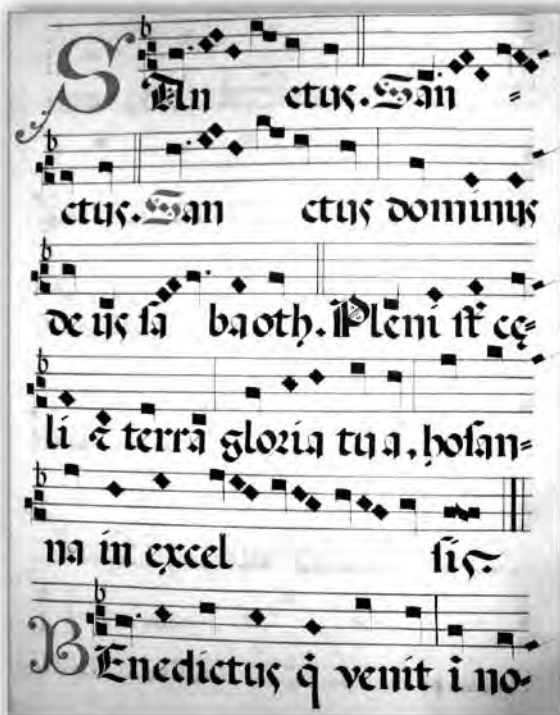 SAn ctus. San=
ctus. San ctus dominus
de us sa baoth. Pleni st cę=
li & terra gloria tu a, hosan=
na in excel sis.
BEnedictus q̃ venit ĩ no-